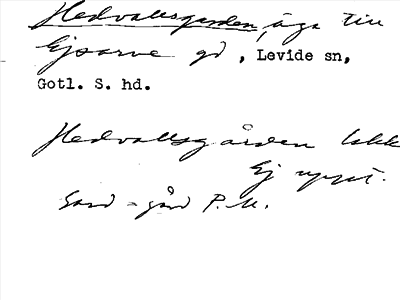 Hedvallsgården, äga till
Ejsarve gd, Levide sn,
Gotl. S. hd.
Hedvallsgården
Ej uppt.
gård P.M.